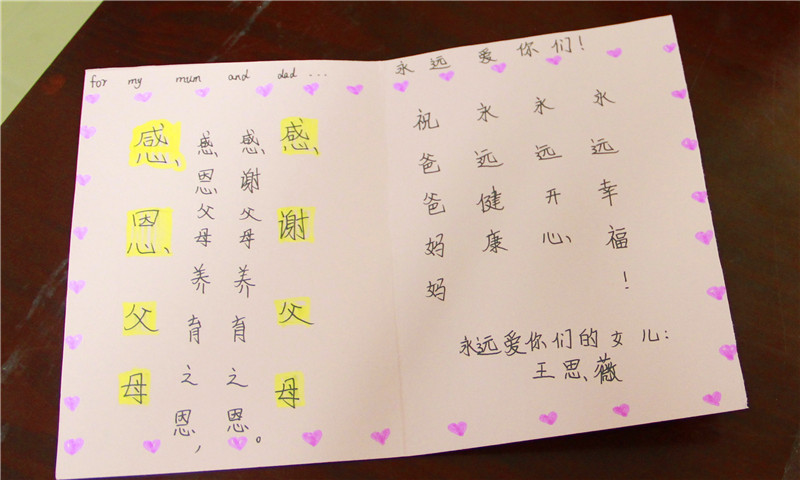 for my mum and dad ...
感恩父母
感恩父母养育之恩，
感谢父母养育之恩。
感谢父母
永远爱你们！
祝爸爸妈妈
永远健康
永远开心
永远幸福！
永远爱你们的女儿：
王思薇